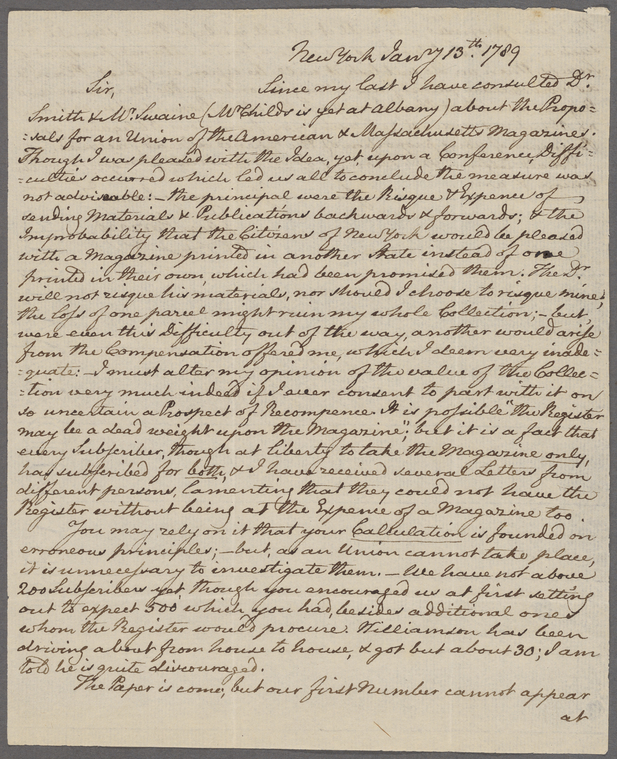 New York Janry 13th. 1789
Sir, Since my last I have consulted Dr.
Smith & Mr. Swaine (Mr Childs is yet at Albany) about the Propo-
-sals for an Union of the American & Massachusetts Magazines.
Though I was pleased with the Idea, yet, upon a Conference, Diffi-
-culties occurred which led us all to conclude the measure was
not adviseable: – the principal were the Risque & Expence of
sending Materials & Publications backwards & forwards; & the
Improbability that the Citizens of New York would be pleased
with a Magazine printed in another State instead of one
printed in their own, which had been promised them. The Dr.
will not risque his materials, nor should I choose to risque mine;
the Loss of one parcel might ruin my whole Collection; – but
were even this Difficulty out of the way, another would arise
from the Compensation offered me, which I deem very inade-
-quate: – I must alter my opinion of the value of the Collec-
-tion very much indeed if I ever consent to part with it on
so uncertain a Prospect of Recompence. It is possible "the Register
may be a dead weight upon the Magazine"; but it is a fact that
every Subscriber, though at liberty to take the Magazine only,
has subscribed for both, & I have received several Letters from
different persons, lamenting that they could not have the
Register without being at the Expence of a Magazine too.
You may rely on it that your Calculation is founded on
erroneous principles; – but, as an Union cannot take place,
it is unnecessary to investigate them. – We have not above
200 Subscribers yet, though you encouraged us at first setting
out to expect 500 which you had, besides additional ones
whom the Register would procure. Williamson has been
driving about from house to house, & got but about 30; I am
told he is quite discouraged.
The Paper is come, but our first Number cannot appear
at